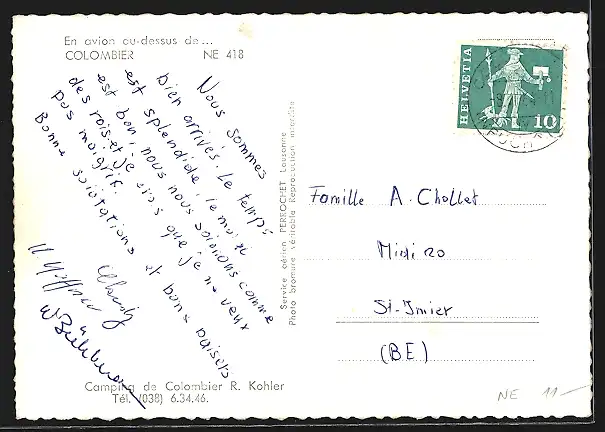 En avion au-dessus de...
COLOMBIER NE 418
Nous sommes
bien arrivés. Le temps
est splendide, le moral
est bon, nous nous soignons comme
des rois et je crois que je ne veux
pas maigrir.
Bonnes salutations et bons baisers
Service aérien PERROCHET Lausanne
Photo bromure véritable Reproduction interdite
HELVETIA
10
NEUCH
Famille A. Chollet
Midi 20
St-Imier
(BE)
Camping de Colombier R. Kohler
Tél. (038) 6.34.46.
NE 11-